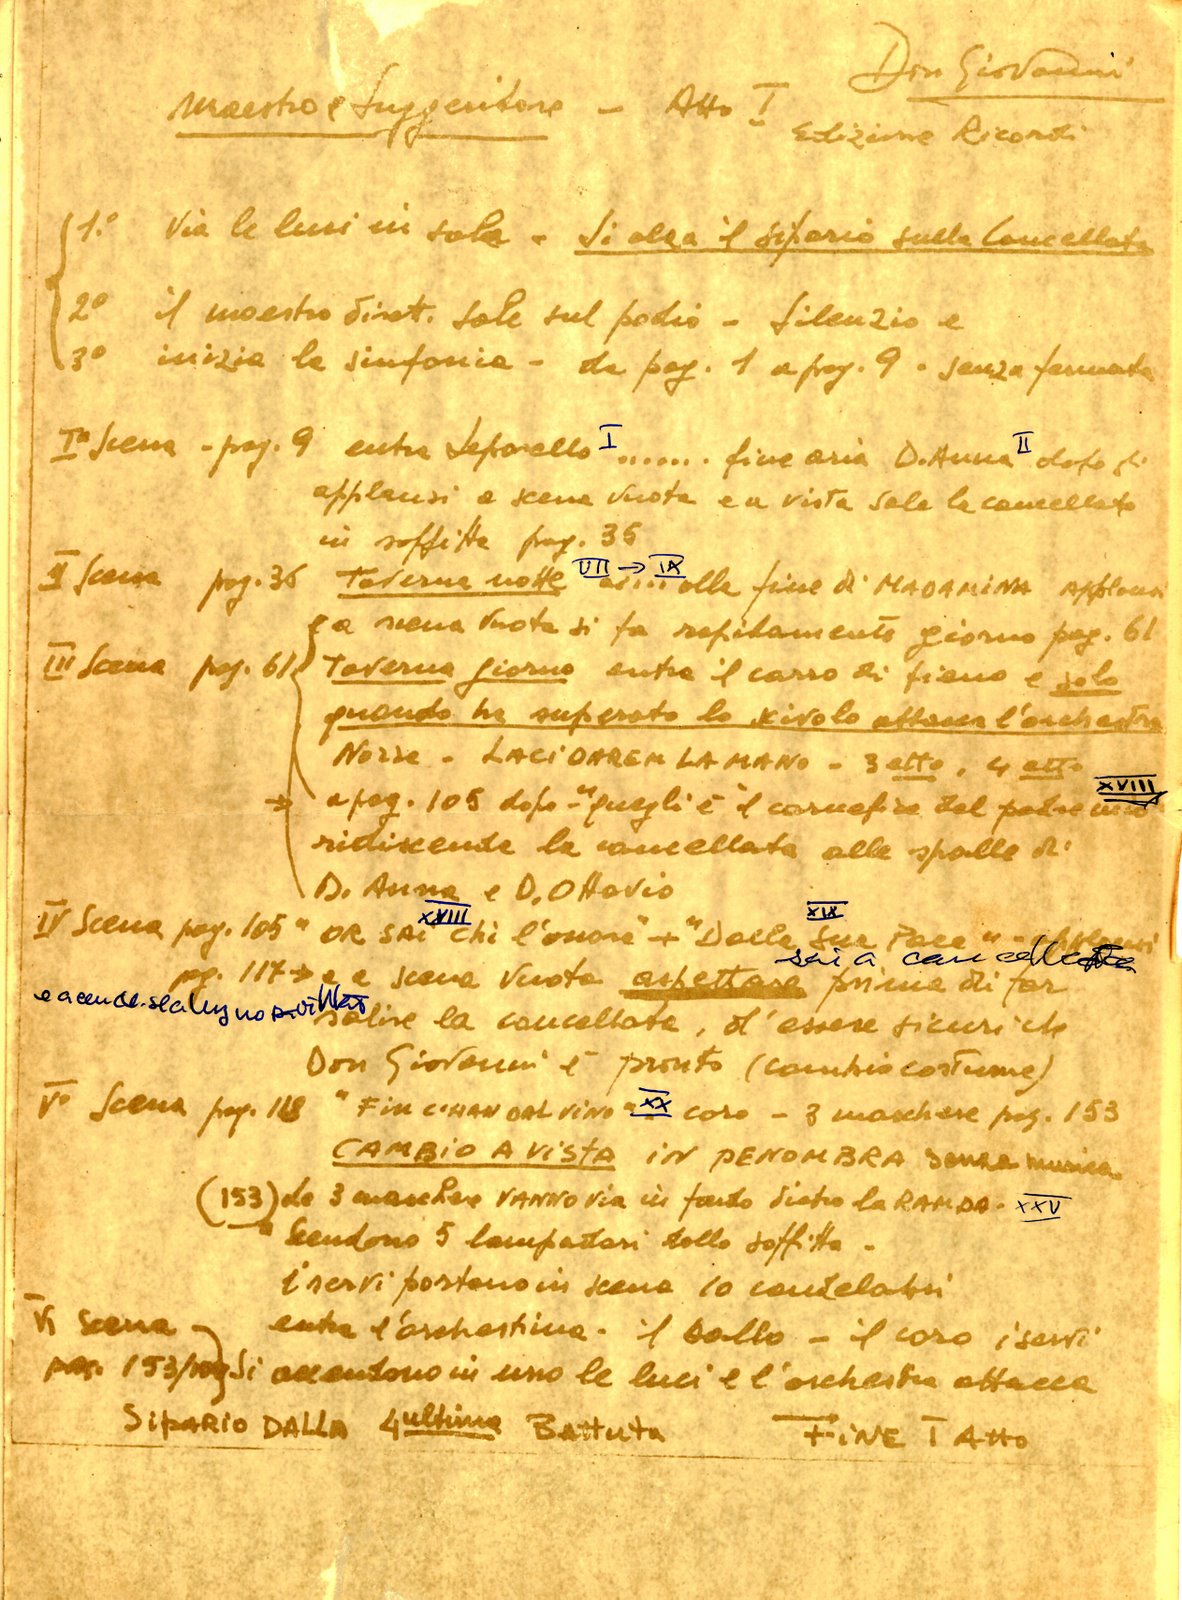 Don Giovanni
Maestro e Suggeritore - Atto I
Edizione Ricordi
1.° Via le luci in sala - Si alza il sipario sulla Cancellata
2° il maestro dirett. sale sul podio - Silenzio e
3° inizia la sinfonia - da pag. 1 a pag. 9 - senza fermata
Iª Scena - pag. 9 entra Leporello I ...... fine aria D. Anna II dopo gli
applausi a scena vuota e a vista sale la cancellata
in soffitta pag. 36
II Scena pag. 36 Taverna notte VII → IX .... alla fine di MADAMINA applausi
e a scena vuota si fa rapidamente giorno pag. 61
III Scena pag. 61 Taverna giorno entra il carro di fieno e solo
quando ha superato lo scivolo attacca l'orchestra
Nozze - LA CI DAREM LA MANO - 3etto, 4etto
→ a pag. 105 dopo - "quegli è il carnefice del padre mio XVIII
ridiscende la cancellata alle spalle di
D. Anna e D. Ottavio
IV Scena pag. 105 " OR SAI chi l'onore" XVIII + "Dalla Sua Pace" XIX - applausi
sale la cancellata
pg. 117 → e a scena vuota aspettare prima di far
e accende segnale
salire la cancellata, d'essere sicuri che
Don Giovanni è pronto (cambio costume)
V° Scena pag. 118 "FIN C'HAN DAL VINO" XX coro - 3 maschere pag. 153
CAMBIO A VISTA IN PENOMBRA senza musica
(153) le 3 maschere VANNO via in fondo dietro la RAMPA. XXV
" Scendono 5 lampadari dalla soffitta -
i servi portano in scena 10 candelabri
VI Scena entra l'orchestrina - il Ballo - il coro i servi
pag. 153 Si accendono in uno le luci e l'orchestra attacca
SIPARIO DALLA 4ultima Battuta FINE I Atto